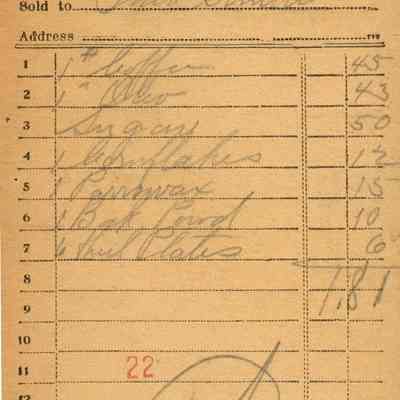 Sold to
Address
1 1# Coffee 45
2 1" Oleo 43
3 Sugar 50
4 1 Cornflakes 12
5 1 Parowax 15
6 1 Bak. Powd 10
7 Plates 6
8 1.81
9
10
11 22
12